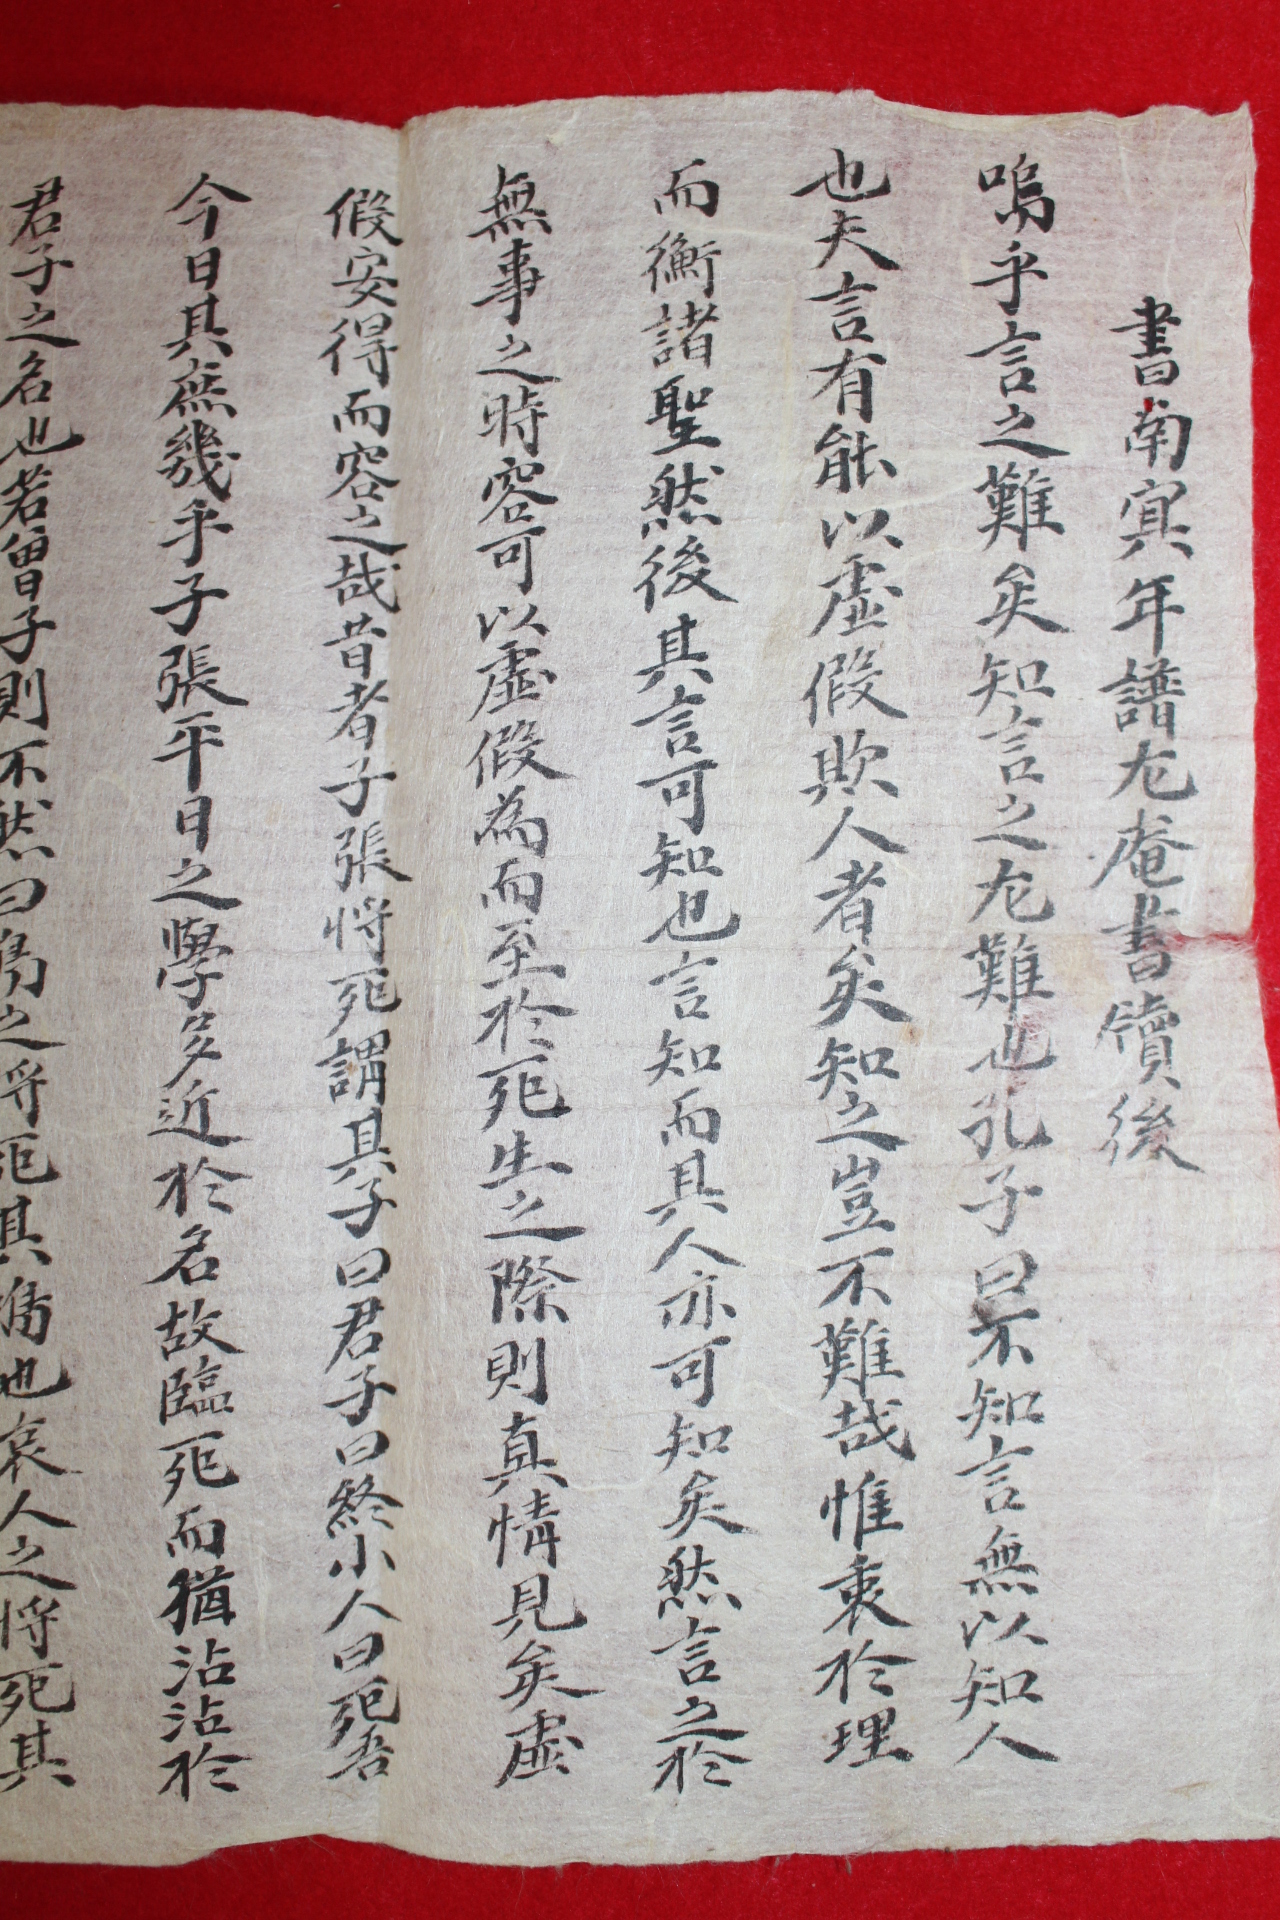 書南冥年譜尤庵書牘後
嗚乎言之難矣知言之尤難也孔子曰不知言無以知人
也夫言有能以虛假欺人者矣知之豈不難哉惟衷於理
而衡諸聖然後其言可知也言知而其人亦可知矣然言之於
無事之時容可以虛假為而至於死生之際則真情見矣虛
假安得而容之哉昔者子張將死謂其子曰君子曰終小人曰死吾
今日其庶幾乎子張平日之學多近於名故臨死而猶沾沾於
君子之名也若曾子則不然曰鳥之將死其鳴也哀人之將死其